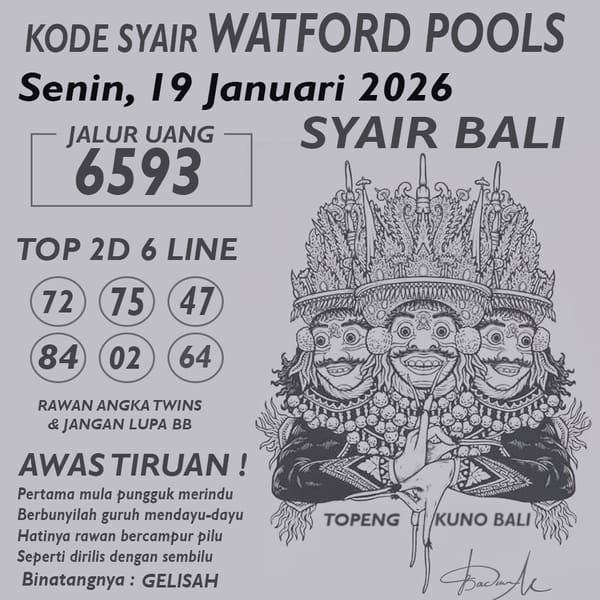 KODE SYAIR WATFORD POOLS
Senin, 19 Januari 2026
SYAIR BALI
JALUR UANG
6593
TOP 2D 6 LINE
72 75 47
84 02 64
RAWAN ANGKA TWINS
& JANGAN LUPA BB
AWAS TIRUAN !
Pertama mula pungguk merindu
Berbunyilah guruh mendayu-dayu
Hatinya rawan bercampur pilu
Seperti dirilis dengan sembilu
Binatangnya : GELISAH
TOPENG KUNO BALI